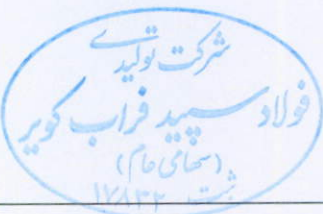 شرکت تولیدی
فولاد سپید فراب کویر
(سهامی عام)
ثبت ۱۷۸۳۲